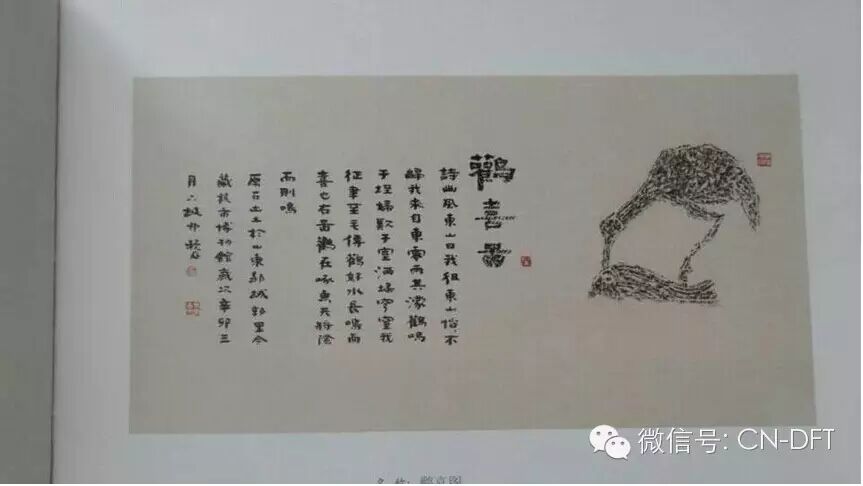 鸛喜图
詩幽風東山曰我徂東山慆不
歸我來自東零雨其濛鸛鳴
于垤婦歎于室洒埽穹窒我
征聿至毛傳鶴好水長鳴而
喜也右畫鸛在啄魚天將陰
而則鳴
原石出土於山東郯城郭里今
藏於市博物館歲次辛卯三
月
名 称：鹳喜图
微信号: CN-DFT